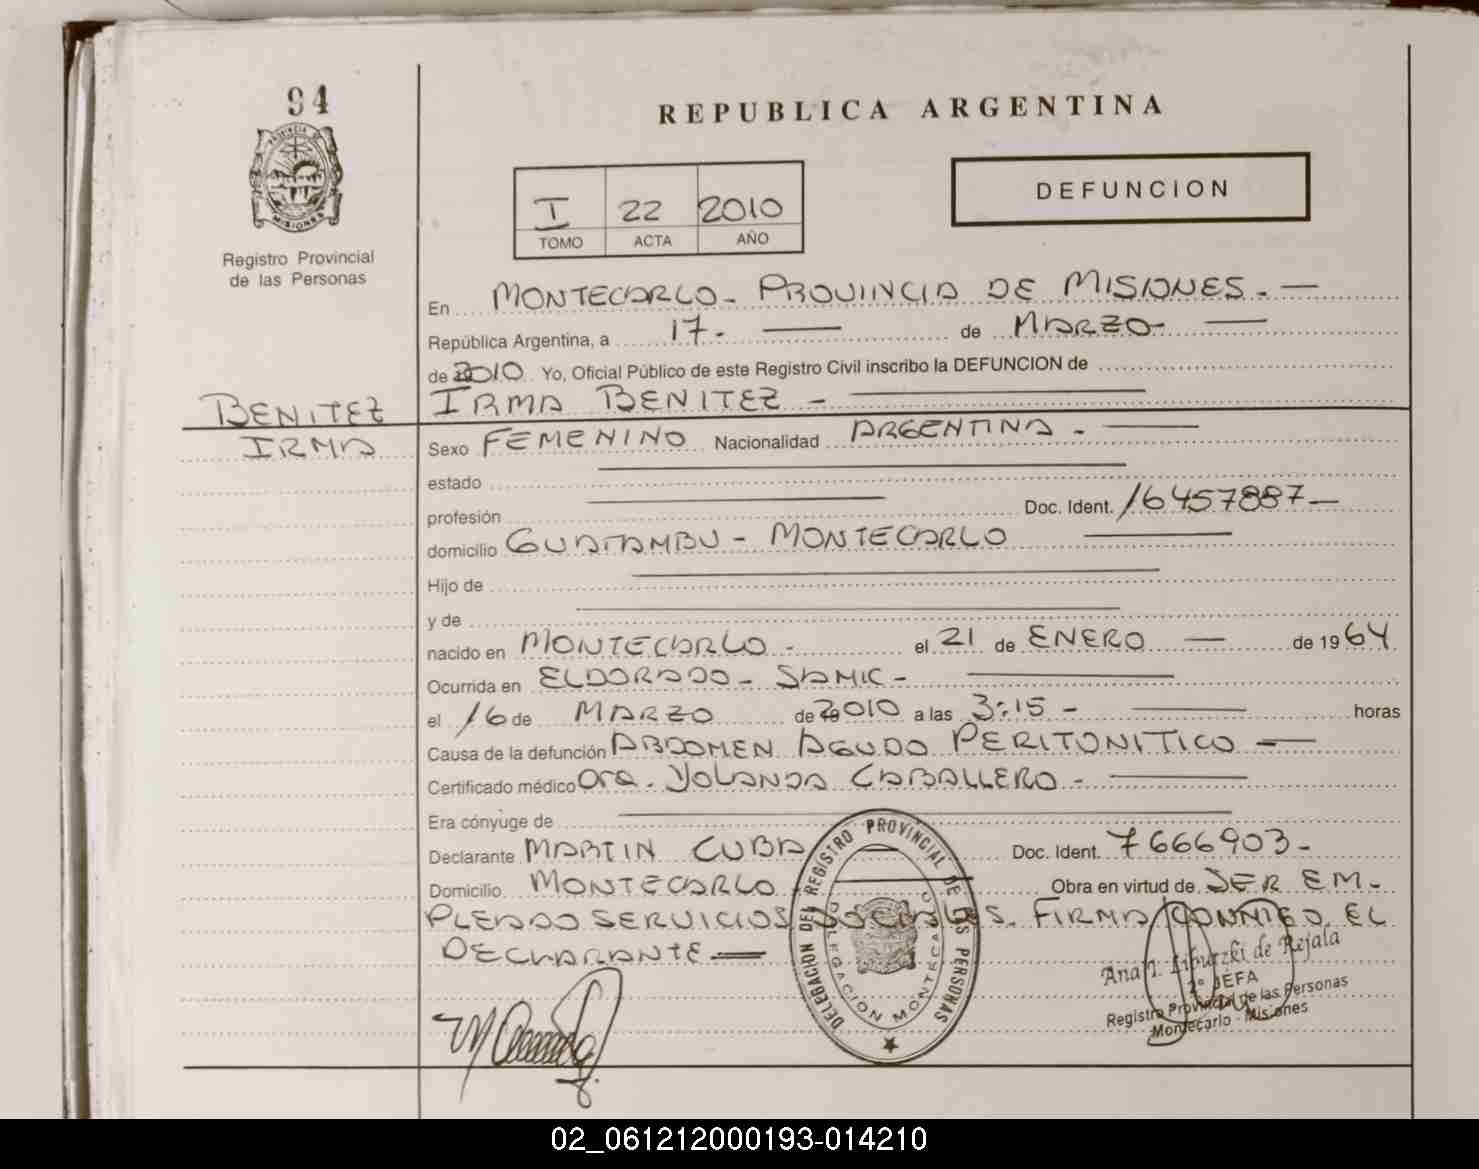 94
PROVINCIA DE
MISIONES
Registro Provincial
de las Personas
REPUBLICA ARGENTINA
I 22 2010
TOMO ACTA AÑO
DEFUNCION
En MONTECARLO - PROVINCIA DE MISIONES. —
República Argentina, a 17. — de MARZO —
de 2010 Yo, Oficial Público de este Registro Civil inscribo la DEFUNCION de
BENITEZ IRMA BENITEZ - —
IRMA Sexo FEMENINO Nacionalidad ARGENTINA. —
estado —
profesión — Doc. Ident. 16457887 —
domicilio GUATAMBU - MONTECARLO —
Hijo de —
y de —
nacido en MONTECARLO - el 21 de ENERO — de 1964
Ocurrida en ELDORADO - SAMIC - —
el 16 de MARZO de 2010 a las 3:15 - — horas
Causa de la defunción ABDOMEN AGUDO PERITONITICO —
Certificado médico Dra. YOLANDA CABALLERO - —
Era cónyuge de —
Declarante MARTIN CUBA — Doc. Ident. 7666903 -
Domicilio MONTECARLO — Obra en virtud de SER EM-
PLEADO SERVICIOS SOCIALES. FIRMA CONMIGO EL
DECLARANTE —
DELEGACION DEL REGISTRO PROVINCIAL DE LAS PERSONAS
DELEGACION MONTECARLO
de Rejala
JEFA
Registro Provincial de las Personas
Montecarlo - Misiones
02_061212000193-014210